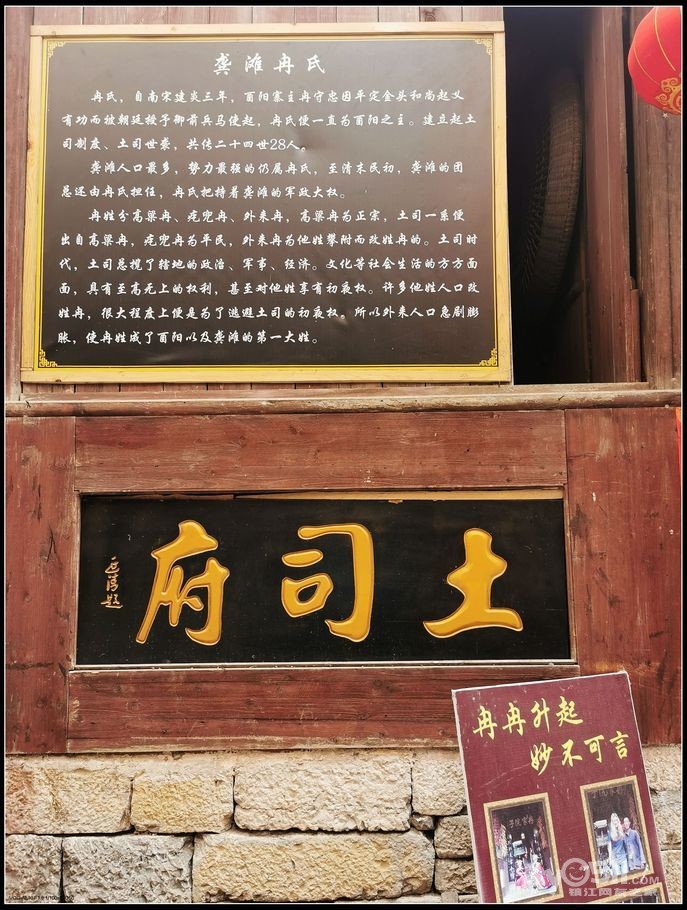 龚滩冉氏
冉氏，自南宋建炎三年，酉阳寨主冉守忠因平定金头和尚起义
有功而被朝廷授予御前兵马使起，冉氏便一直为酉阳之主。建立起土
司制度、土司世袭，共传二十四世28人。
龚滩人口最多，势力最强的仍属冉氏，至清末民初，龚滩的团
总还由冉氏担任，冉氏把持着龚滩的军政大权。
冉姓分高梁冉、疙兜冉、外来冉，高梁冉为正宗，土司一系便
出自高梁冉，疙兜冉为平民，外来冉为他姓攀附而改姓冉的。土司时
代，土司总揽了辖地的政治、军事、经济。文化等社会生活的方方面
面，具有至高无上的权利，甚至对他姓享有初夜权。许多他姓人口改
姓冉，很大程度上便是为了逃避土司的初夜权。所以外来人口急剧膨
胀，使冉姓成了酉阳以及龚滩的第一大姓。
土司府
冉冉升起
妙不可言
镇江网友